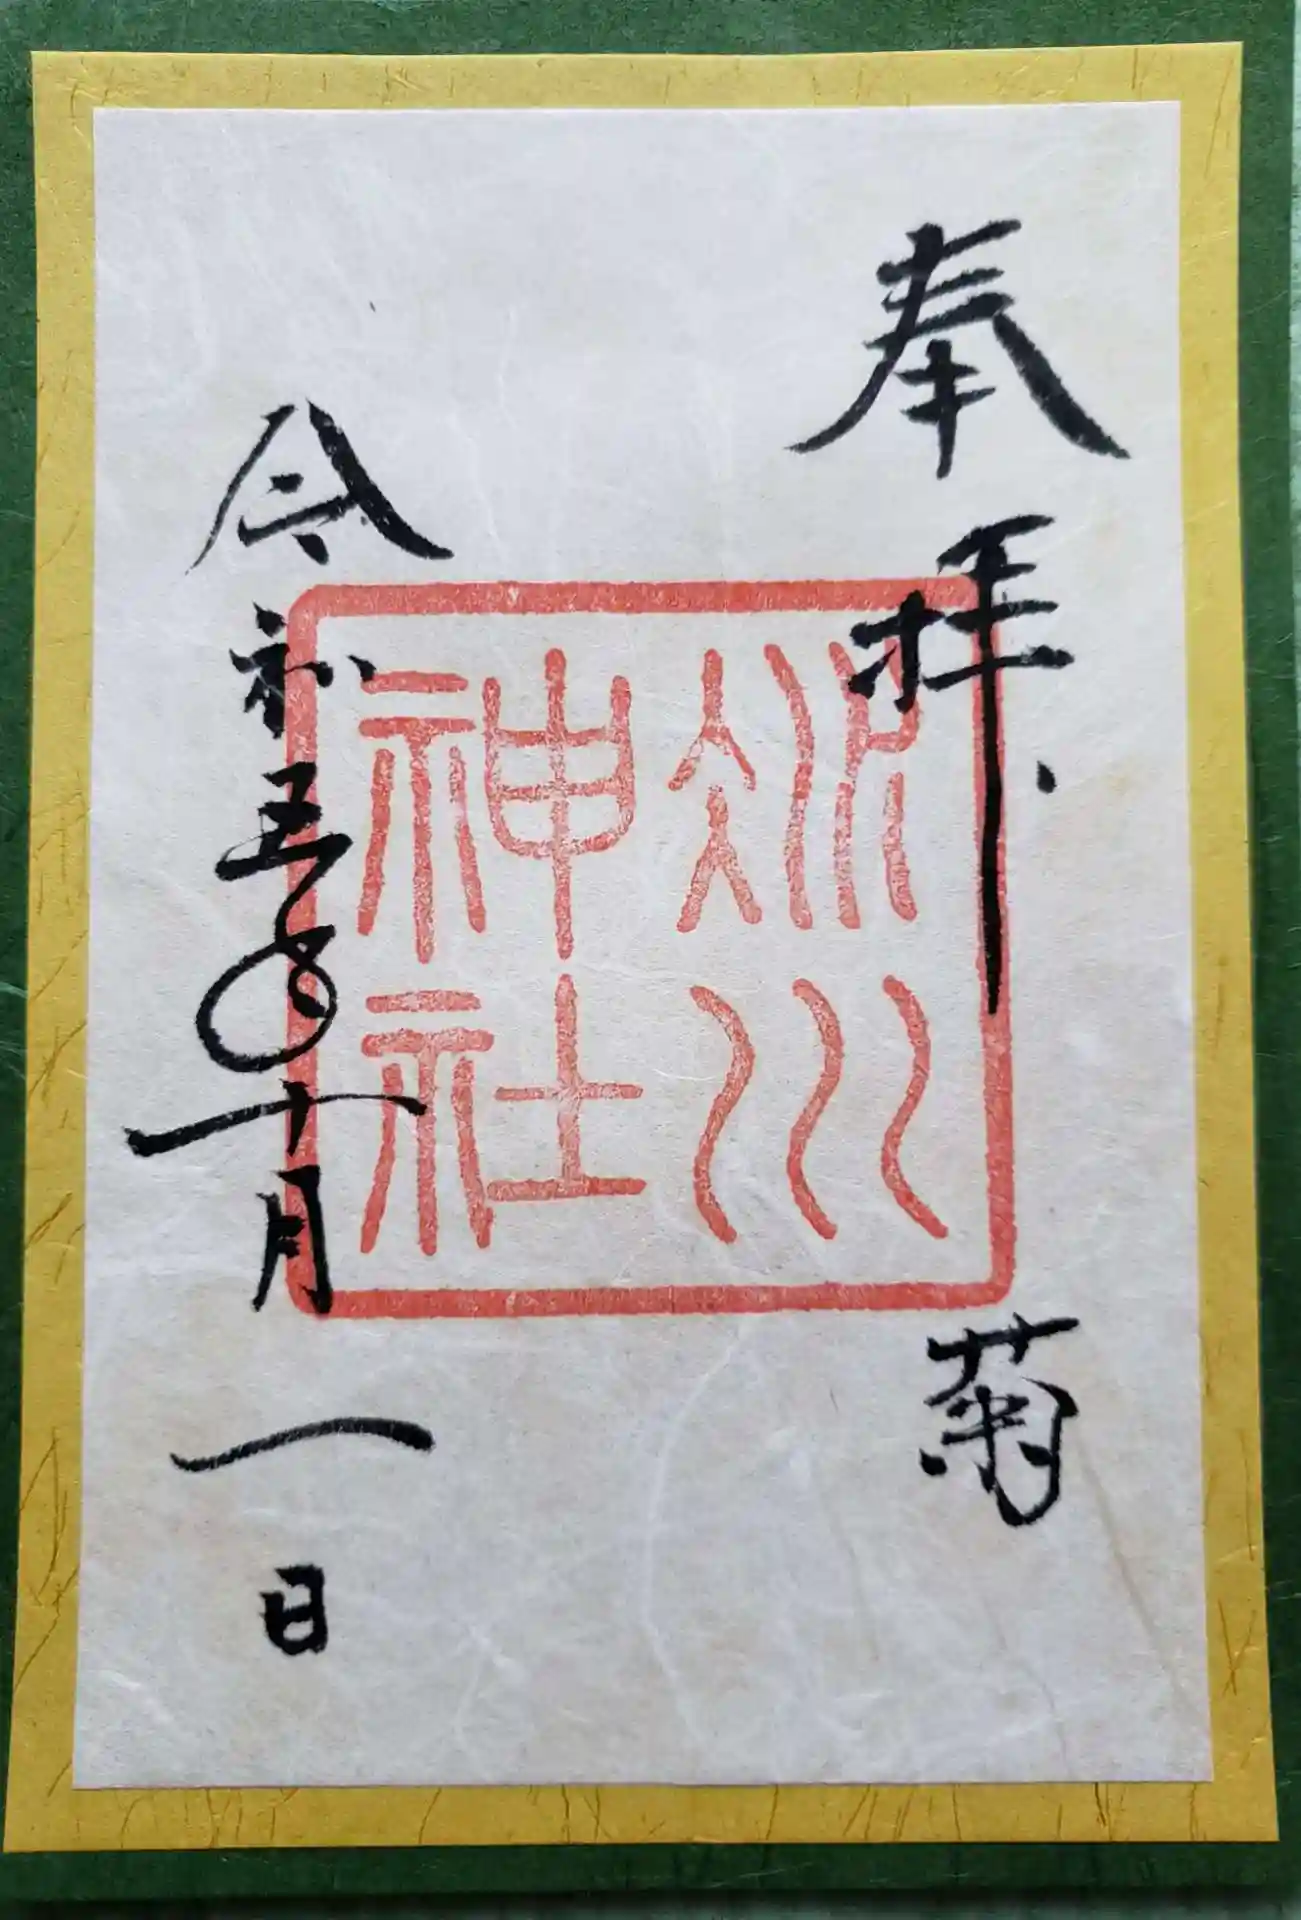 奉拝
菊
冰川
神社
令和五年十月一日